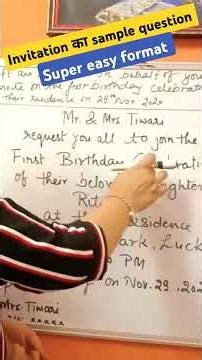 Invitation का sample question
Super easy format
an on behalf of you
on the first birthday celebrat
their residence on 29th Nov. 2020
Mr. & Mrs Tiwari
request you all to join the
First Birthday
of their belov
Rit
at residence
ark, Luck
PM
on Nov. 29, 202
Mrs. Tiwari